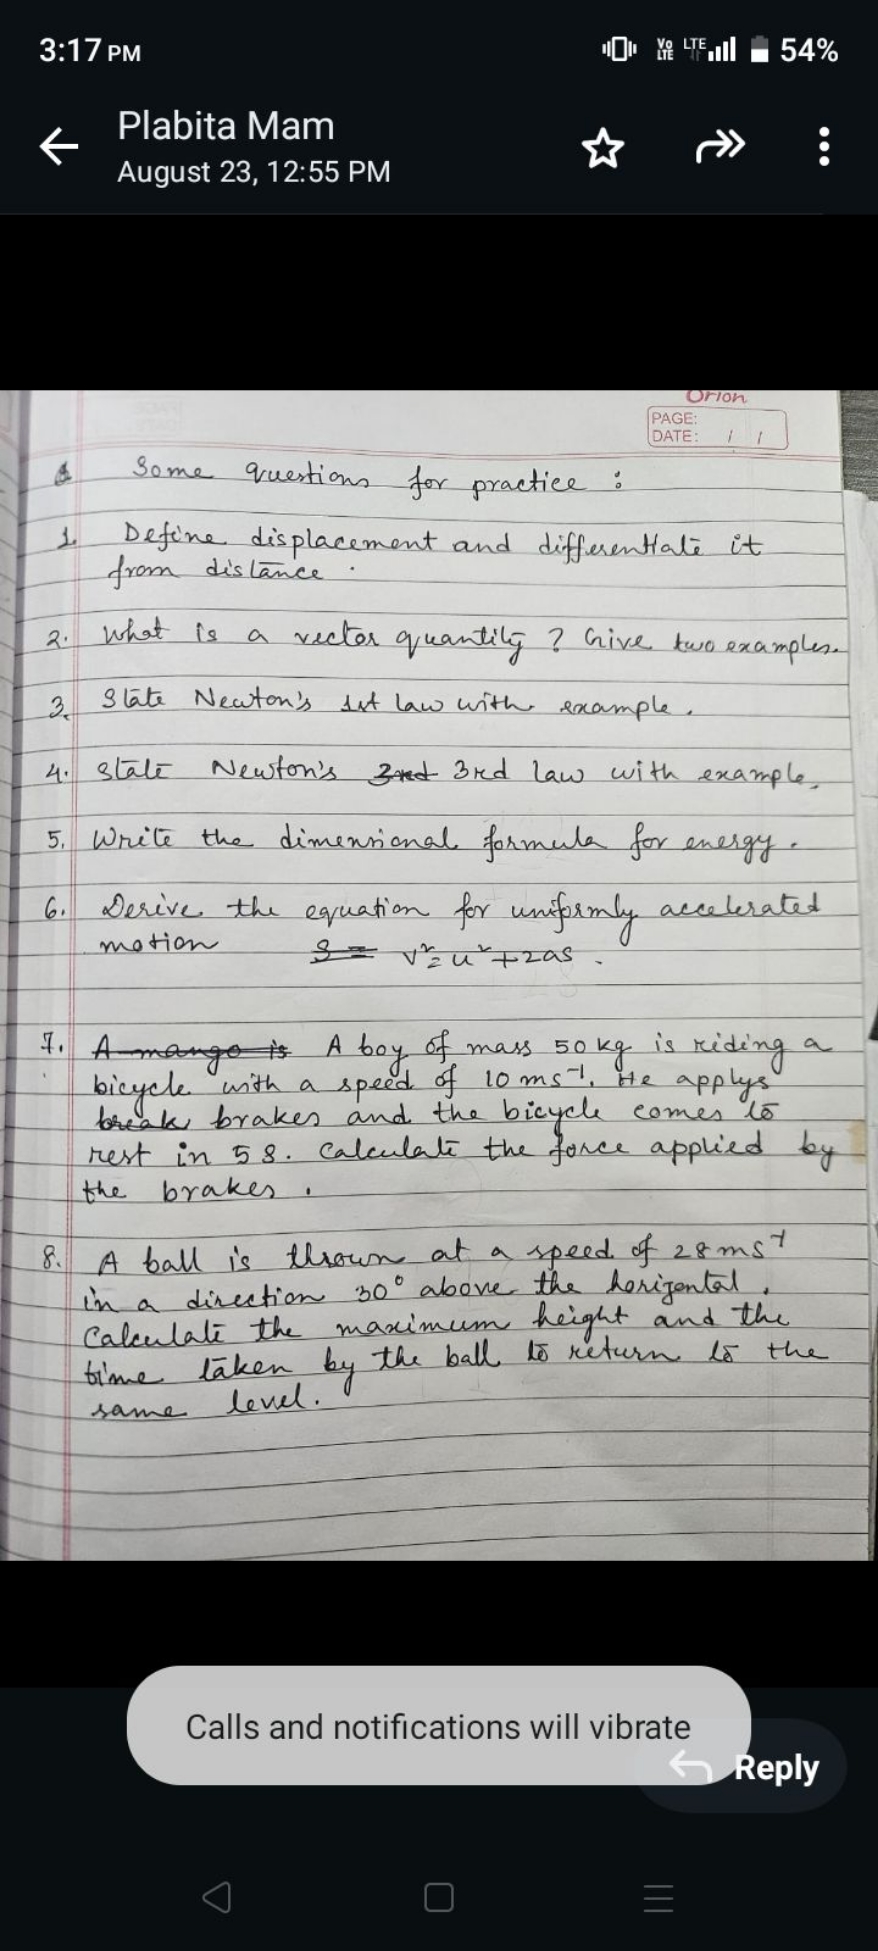 3:17 PM
Vo LTE LTE 54%
Plabita Mam
August 23, 12:55 PM
Orion
PAGE:
DATE: / /
Some questions for practice :
1. Define displacement and differentiate it
from distance.
2. What is a vector quantity ? Give two examples.
3. State Newton's 1st law with example.
4. State Newton's 2nd 3rd law with example.
5. Write the dimensional formula for energy.
6. Derive the equation for uniformly accelerated
motion S = v²=u²+2as.
7. A mango is A boy of mass 50 kg is riding a
bicycle with a speed of 10 ms⁻¹. He applys
break brakes and the bicycle comes to
rest in 5 s. Calculate the force applied by
the brakes.
8. A ball is thrown at a speed of 28 ms⁻¹
in a direction 30° above the horizontal.
Calculate the maximum height and the
time taken by the ball to return to the
same level.
Calls and notifications will vibrate
Reply